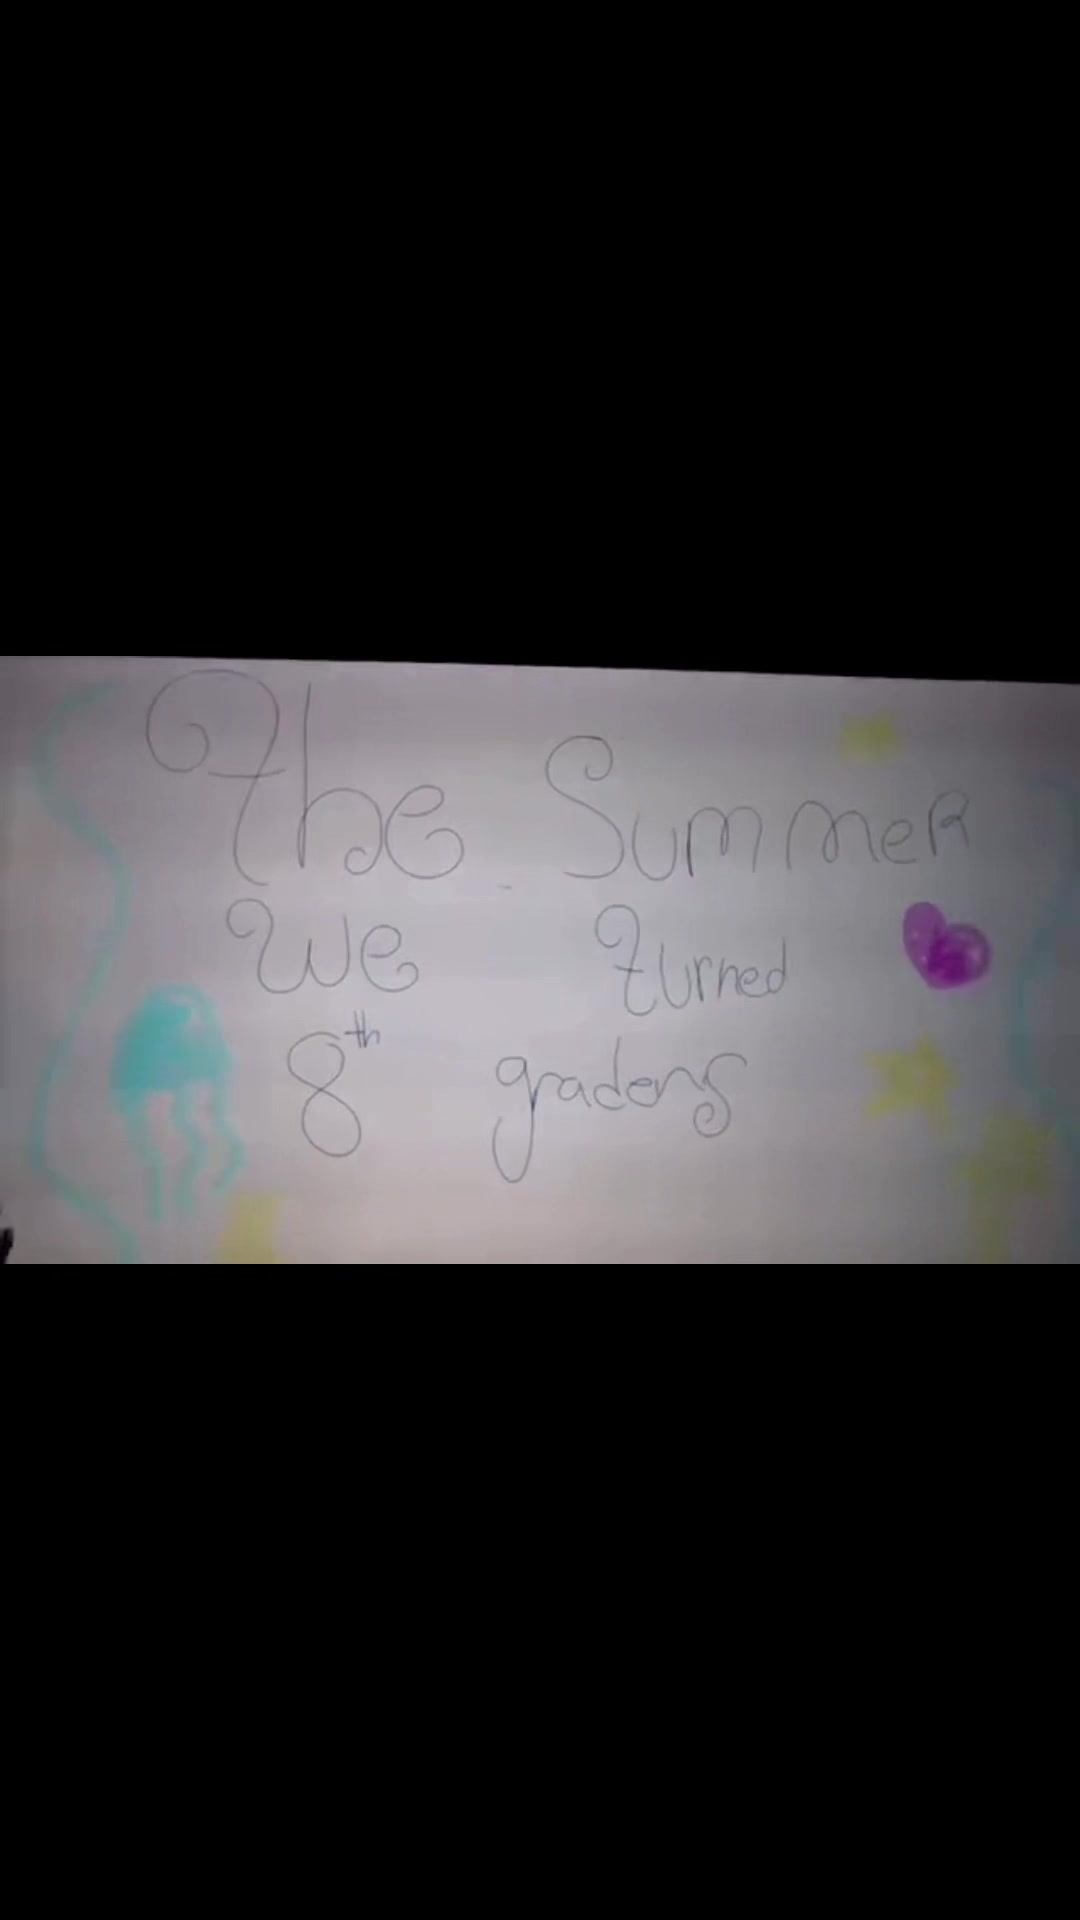 The Summer
We turned
8th graders